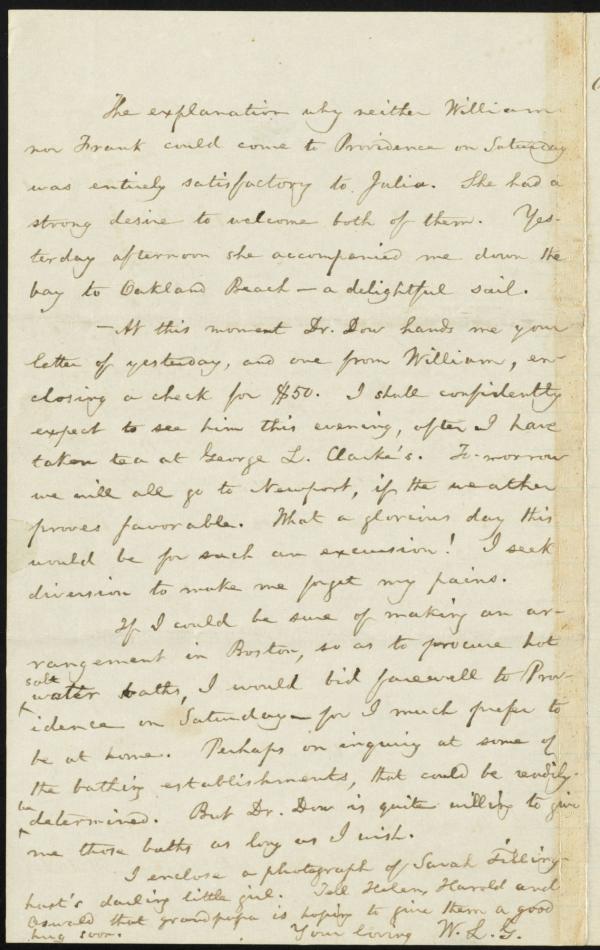 The explanation why neither William
nor Frank could come to Providence on Saturday
was entirely satisfactory to Julia. She had a
strong desire to welcome both of them. Yes-
terday afternoon she accompanied me down the
bay to Oakland Beach — a delightful sail.
— At this moment Dr. Dow hands me your
letter of yesterday, and one from William, en-
closing a check for $50. I shall confidently
expect to see him this evening, after I have
taken tea at George L. Clarke's. To-morrow
we will all go to Newport, if the weather
proves favorable. What a glorious day this
would be for such an excursion! I seek
diversion to make me forget my pains.
If I could be sure of making an ar-
rangement in Boston, so as to procure hot
salt
water baths, I would bid farewell to Prov-
idence on Saturday — for I much prefer to
be at home. Perhaps on inquiry at some of
the bathing establishments, that could be readily
be
determined. But Dr. Dow is quite willing to give
me those baths as long as I wish.
I enclose a photograph of Sarah Filling-
hast's darling little girl. Tell Helen, Harold and
Oswald that grandpapa is hoping to give them a good
hug soon. Your loving W. L. G.